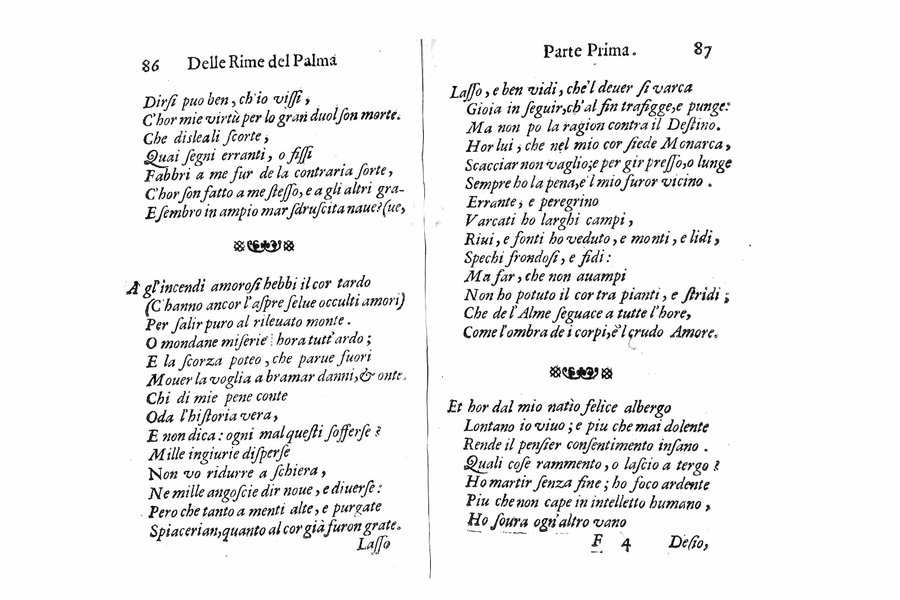 86 Delle Rime del Palma
Dirſi puo ben, ch'io viſſi,
C'hor mie virtù per lo gran duol ſon morte.
Che disleali ſcorte,
Quai ſegni erranti, o fiſſi
Fabbri a me fur de la contraria ſorte,
C'hor ſon fatto a me ſteſſo, e a gli altri gra-
E ſembro in ampio mar ſdruſcita naue? (ue,
A gl'incendi amoroſi hebbi il cor tardo
(C'hanno ancor l'aſpre ſelue occulti amori)
Per ſalir puro al rileuato monte.
O mondane miſerie hora tutt'ardo;
E la ſcorza poteo, che parue fuori
Mouer la voglia a bramar danni, & onte.
Chi di mie pene conte
Oda l'hiſtoria vera,
E non dica: ogni mal queſti ſofferſe?
Mille ingiurie diſperſe
Non vo ridurre a ſchiera,
Ne mille angoſcie dir noue, e diuerſe:
Pero che tanto a menti alte, e purgate
Spiacerian, quanto al cor già furon grate.
Laſſo
Parte Prima. 87
Laſſo, e ben vidi, che'l deuer ſi varca
Gioia in ſeguir, ch'al fin trafigge, e punge:
Ma non po la ragion contra il Deſtino.
Hor lui, che nel mio cor ſiede Monarca,
Scacciar non vaglio; e per gir preſſo, o lunge
Sempre ho la pena, e'l mio furor vicino.
Errante, e peregrino
Varcati ho larghi campi,
Riui, e fonti ho veduto, e monti, e lidi,
Spechi frondoſi, e fidi:
Ma far, che non auampi
Non ho potuto il cor tra pianti, e ſtridi;
Che de l'Alme ſeguace a tutte l'hore,
Come l'ombra de i corpi, è'l crudo Amore.
Et hor dal mio natio felice albergo
Lontano io viuo; e piu che mai dolente
Rende il penſier conſentimento inſano.
Quali coſe rammento, o laſcio a tergo?
Ho martir ſenza fine; ho foco ardente
Piu che non cape in intelletto humano,
Ho ſoura ogn'altro vano
F 4 Deſio,